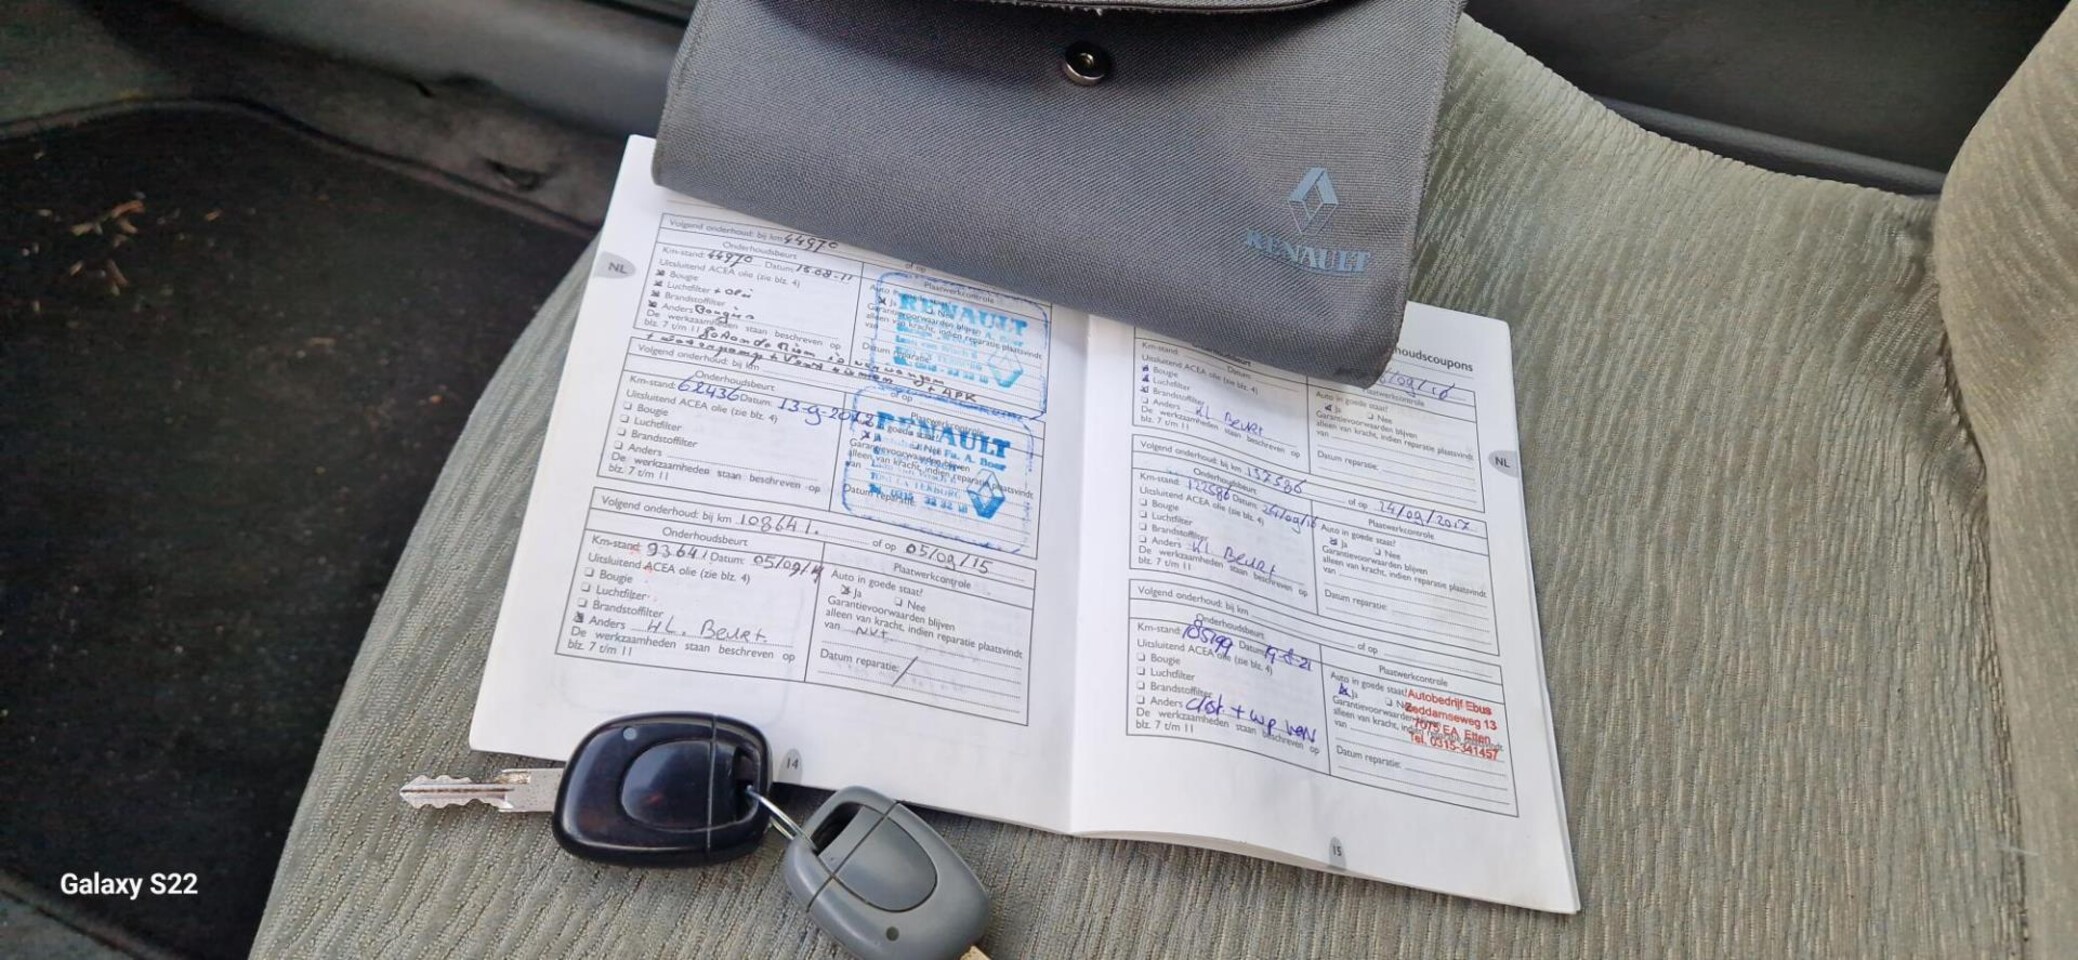 RENAULT
NL
Volgend onderhoud: bij km 44970
Onderhoudsbeurt
Km-stand: 44970 Datum: 15-08-11
Uitsluitend ACEA olie (zie blz. 4)
Bougie
Luchtfilter
Brandstoffilter
Anders Bougies
De werkzaamheden staan beschreven op
blz. 7 t/m 11
of op
Plaatwerkcontrole
Ja
Garantievoorwaarden blijven
alleen van kracht, indien reparatie plaatsvindt
van
Datum reparatie:
RENAULT
Volgend onderhoud: bij km
of op
Onderhoudsbeurt
Km-stand: 62436 Datum:
Uitsluitend ACEA olie (zie blz. 4)
Bougie
Luchtfilter
Brandstoffilter
Anders
De werkzaamheden staan beschreven op
blz. 7 t/m 11
Plaatwerkcontrole
Garantievoorwaarden blijven
alleen van kracht, indien reparatie plaatsvindt
van
Datum reparatie:
RENAULT
Fa. A. Boer
Volgend onderhoud: bij km 108641. of op 05/09/15
Onderhoudsbeurt
Km-stand: 93641 Datum: 05/09/14
Uitsluitend ACEA olie (zie blz. 4)
Bougie
Luchtfilter
Brandstoffilter
Anders KL. Beurt.
De werkzaamheden staan beschreven op
blz. 7 t/m 11
Plaatwerkcontrole
Auto in goede staat?
Ja Nee
Garantievoorwaarden blijven
alleen van kracht, indien reparatie plaatsvindt
van NVT
Datum reparatie: /
14
NL
Km-stand: Datum:
Uitsluitend ACEA olie (zie blz. 4)
Bougie
Luchtfilter
Brandstoffilter
Anders KL Beurt
De werkzaamheden staan beschreven op
blz. 7 t/m 11
Auto in goede staat?
Ja Nee
Garantievoorwaarden blijven
alleen van kracht, indien reparatie plaatsvindt
van
Datum reparatie:
Volgend onderhoud: bij km 137586 of op 24/09/2017
Onderhoudsbeurt
Km-stand: 122586 Datum: 24/09/16
Uitsluitend ACEA olie (zie blz. 4)
Bougie
Luchtfilter
Brandstoffilter
Anders KL Beurt
De werkzaamheden staan beschreven op
blz. 7 t/m 11
Plaatwerkcontrole
Auto in goede staat?
Ja Nee
Garantievoorwaarden blijven
alleen van kracht, indien reparatie plaatsvindt
van
Datum reparatie:
Volgend onderhoud: bij km of op
Onderhoudsbeurt
Km-stand: Datum:
Uitsluitend ACEA olie (zie blz. 4)
Bougie
Luchtfilter
Brandstoffilter
Anders dist. + wp
De werkzaamheden staan beschreven op
blz. 7 t/m 11
Plaatwerkcontrole
Auto in goede staat?
Ja
Garantievoorwaarden
alleen van kracht, indien
van
Datum reparatie:
Autobedrijf Ebus
Zeddamseweg 13
7075 EA Etten
Tel. 0315-341457
15
Galaxy S22